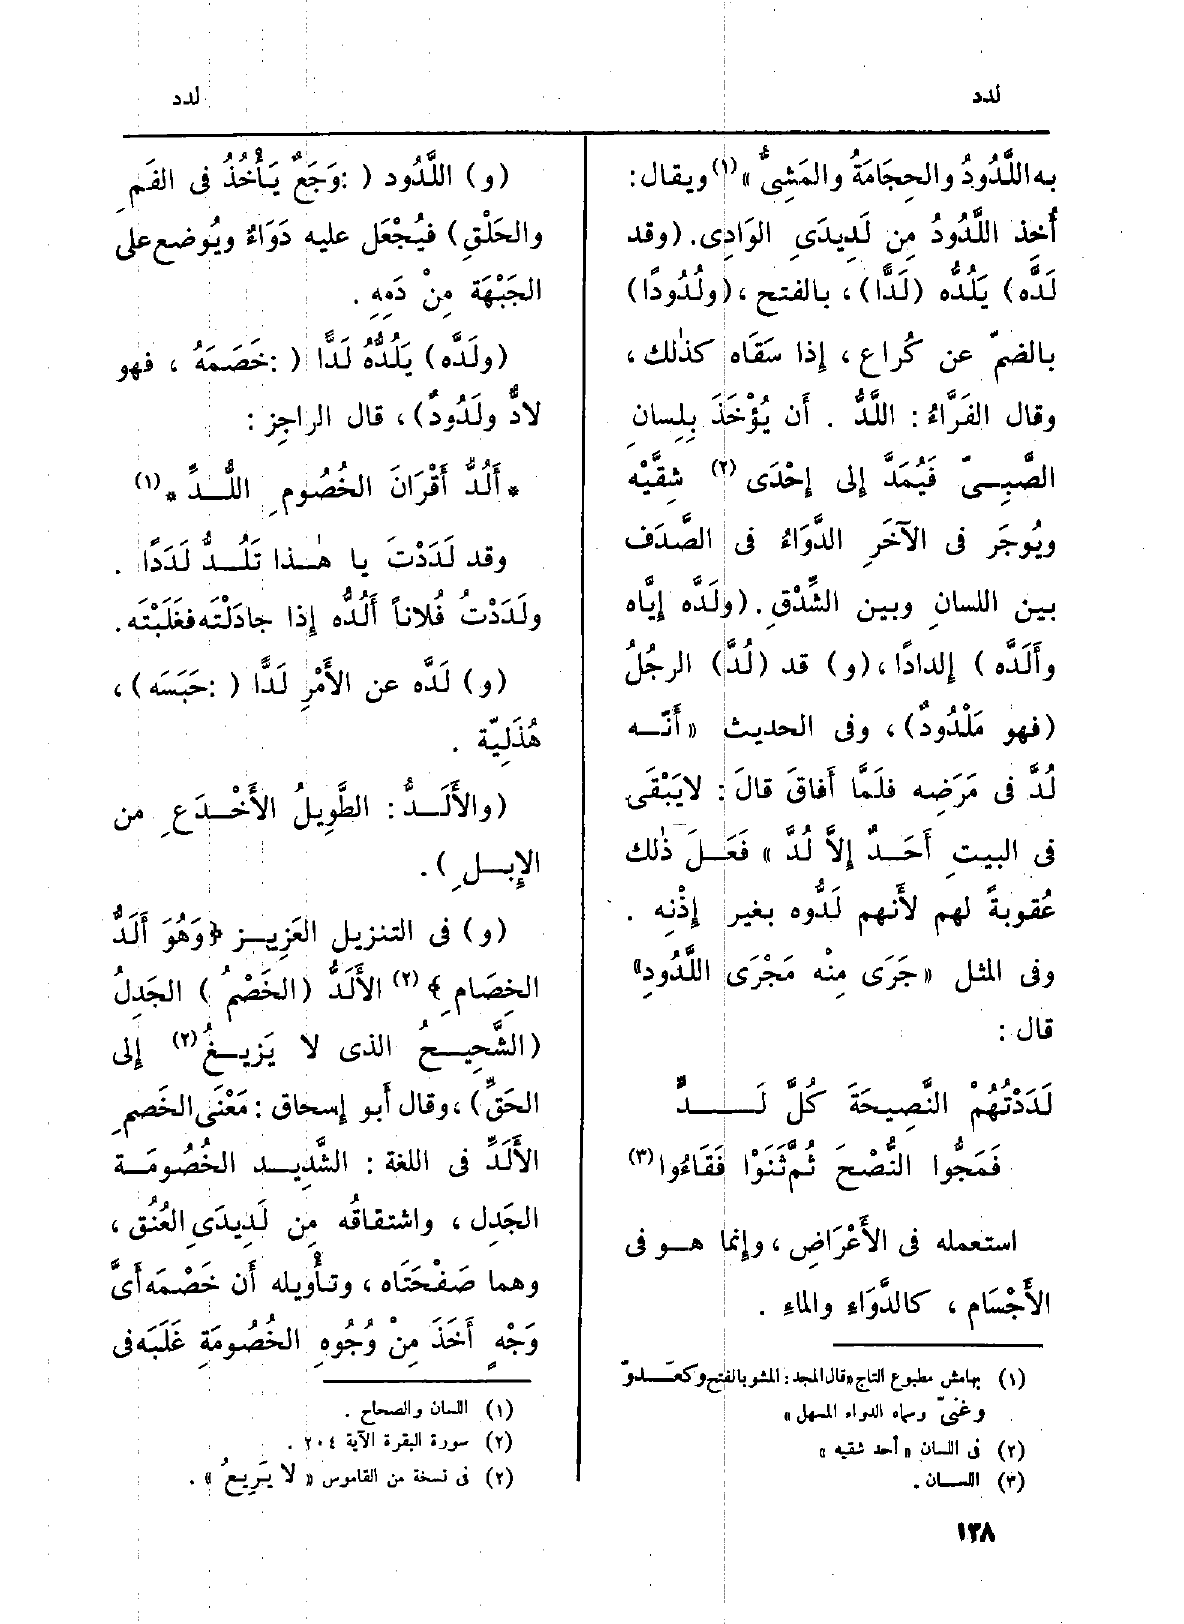 لدد
لدد
به اللَّدُودُ والحِجَامَةُ والمَشِىُّ » (١) ويقال :
أُخِذ اللَّدُودُ مِن لَدِيدَىِ الوَادِى . (وقد
لَدَّه) يَلُدُّه (لَدًّا) ، بالفتح ، (ولُدُودًا)
بالضمّ عن كُراع ، إذا سَقَاه كذلك ،
وقال الفَرَّاءُ : اللَّدُّ . أَن يُؤْخَذَ بِلِسانِ
الصَّبِىّ فَيُمَدَّ إلى إحْدَى (٢) شِقَّيْه
ويُوجَر فى الآخَرِ الدَّوَاءُ فى الصَّدَف
بين اللسانِ وبين الشِّدْقِ . (ولَدَّه إيَّاه
وأَلَدَّه ) إلدادًا ، (و) قد (لُدَّ) الرجُلُ
(فهو مَلْدُودٌ) ، وفى الحديث « أَنّه
لُدَّ فى مَرَضِه فلَمَّا أَفاقَ قالَ : لايَبْقَى
فى البيتِ أَحَدٌ إلاَّ لُدَّ » فَعَلَ ذٰلك
عُقوبةً لهم لأَنهم لَدُّوه بغير إذْنِه .
وفى المثل « جَرَى مِنْه مَجْرَى اللَّدُودِ»
قال :
لَدَدْتُهُمْ النَّصِيحَةَ كُلَّ لَدٍّ
فَمَجُّوا النُّصْحَ ثُمَّ ثَنَوْا فَقَاءُوا (٣)
استعمله فى الأَعْرَاضِ ، وإنما هو فى
الأَجْسَام ، كالدَّوَاءِ والماءِ .
(١) بهامش مطبوع التاج «قال المجد : المشو بالفتح وكعدوّ
وغنىّ وسماه الدواء المسهل »
(٢) فى اللسان « أحد شقيه »
(٣) اللسان .
(و) اللَّدُود ( : وَجَعٌ يَأْخُذُ فى الفَمِ
والحَلْقِ) فيُجْعَل عليه دَوَاءٌ ويُوضع على
الجَبْهَة مِنْ دَمِهِ .
(ولَدَّه) يَلُدُّهُ لَدًّا ( : خَصَمَهُ ، فهو
لادٌّ ولَدُودٌ) ، قال الراجِز :
* أَلُدُّ أَقْرَانَ الخُصُومِ اللُّدِّ * (١)
وقد لَدَدْتَ يا هٰذا تَلُدُّ لَدَدًا .
ولَدَدْتُ فُلاناً أَلُدُّه إذا جادَلْتَه فغَلَبْتَه .
(و) لَدَّه عن الأَمْرِ لَدًّا ( : حَبَسَه) ،
هُذَلِيّة .
(والأَلَدُّ : الطَّوِيلُ الأَخْدَعِ من
الإبلِ) .
(و) فى التنزيل العَزِيز ﴿وَهُوَ أَلَدُّ
الخِصَامِ ﴾ (٢) الأَلَدُّ (الخَصْمُ ) الجَدِلُ
(الشَّحِيحُ الذى لا يَزِيغُ (٢) إلى
الحَقِّ) ، وقال أَبو إسحاق : مَعْنَى الخَصمِ
الأَلَدِّ فى اللغة : الشَّدِيد الخُصُومَة
الجَدِل ، واشتقاقُه مِن لَدِيدَىِ العُنُق ،
وهما صَفْحَتَاه ، وتأْويله أَن خَصْمَه أَىَّ
وَجْهٍ أَخَذَ مِنْ وُجُوهِ الخُصُومَةِ غَلَبَه فى
(١) اللسان والصحاح .
(٢) سورة البقرة الآية ٢٠٤ .
(٢) فى نسخة من القاموس « لا يَرِيعُ » .
١٣٨